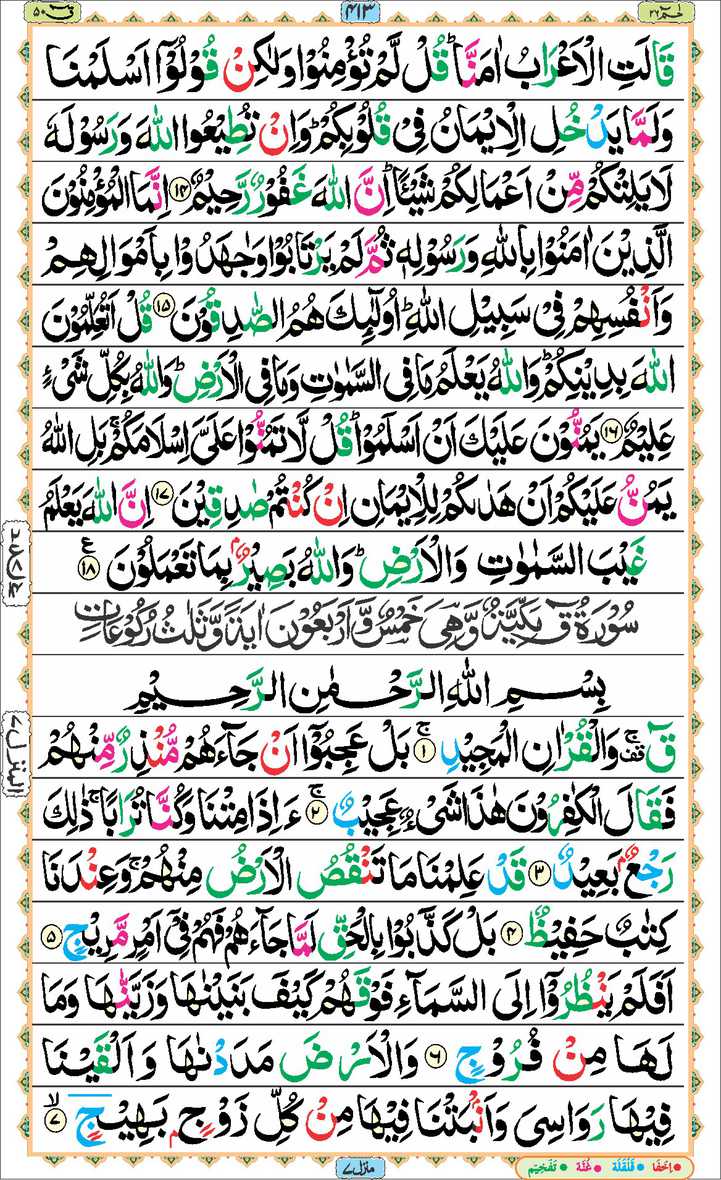 قٓ ۵۰ ۴۱۳ حٰمٓ ۲۶
قَالَتِ الْاَعْرَابُ اٰمَنَّا ؕ قُلْ لَّمْ تُؤْمِنُوْا وَلٰكِنْ قُوْلُوْۤا اَسْلَمْنَا
وَلَمَّا يَدْخُلِ الْاِيْمَانُ فِيْ قُلُوْبِكُمْ ؕ وَاِنْ تُطِيْعُوا اللّٰهَ وَرَسُوْلَهٗ
لَا يَلِتْكُمْ مِّنْ اَعْمَالِكُمْ شَيْـًٔا ؕ اِنَّ اللّٰهَ غَفُوْرٌ رَّحِيْمٌ ۱۴ اِنَّمَا الْمُؤْمِنُوْنَ
الَّذِيْنَ اٰمَنُوْا بِاللّٰهِ وَرَسُوْلِهٖ ثُمَّ لَمْ يَرْتَابُوْا وَجٰهَدُوْا بِاَمْوَالِهِمْ
وَاَنْفُسِهِمْ فِيْ سَبِيْلِ اللّٰهِ ؕ اُولٰٓئِكَ هُمُ الصّٰدِقُوْنَ ۱۵ قُلْ اَتُعَلِّمُوْنَ
اللّٰهَ بِدِيْنِكُمْ ؕ وَاللّٰهُ يَعْلَمُ مَا فِي السَّمٰوٰتِ وَمَا فِي الْاَرْضِ ؕ وَاللّٰهُ بِكُلِّ شَيْءٍ
عَلِيْمٌ ۱۶ يَمُنُّوْنَ عَلَيْكَ اَنْ اَسْلَمُوْا ؕ قُلْ لَّا تَمُنُّوْا عَلَيَّ اِسْلَامَكُمْ ۚ بَلِ اللّٰهُ
يَمُنُّ عَلَيْكُمْ اَنْ هَدٰىكُمْ لِلْاِيْمَانِ اِنْ كُنْتُمْ صٰدِقِيْنَ ۱۷ اِنَّ اللّٰهَ يَعْلَمُ
غَيْبَ السَّمٰوٰتِ وَالْاَرْضِ ؕ وَاللّٰهُ بَصِيْرٌۢ بِمَا تَعْمَلُوْنَ ۱۸ ع
سُوْرَةُ قٓ مَكِّيَّةٌ وَّهِيَ خَمْسٌ وَّاَرْبَعُوْنَ اٰيَةً وَّثَلٰثُ رُكُوْعَاتٍ
بِسْمِ اللّٰهِ الرَّحْمٰنِ الرَّحِيْمِ
قٓ ۚ قف وَالْقُرْاٰنِ الْمَجِيْدِ ۱ ۚ بَلْ عَجِبُوْۤا اَنْ جَآءَهُمْ مُّنْذِرٌ مِّنْهُمْ
فَقَالَ الْكٰفِرُوْنَ هٰذَا شَيْءٌ عَجِيْبٌ ۲ ۚ ءَاِذَا مِتْنَا وَكُنَّا تُرَابًا ۚ ذٰلِكَ
رَجْعٌۢ بَعِيْدٌ ۳ قَدْ عَلِمْنَا مَا تَنْقُصُ الْاَرْضُ مِنْهُمْ ۚ وَعِنْدَنَا
كِتٰبٌ حَفِيْظٌ ۴ بَلْ كَذَّبُوْا بِالْحَقِّ لَمَّا جَآءَهُمْ فَهُمْ فِيْۤ اَمْرٍ مَّرِيْجٍ ۵
اَفَلَمْ يَنْظُرُوْۤا اِلَى السَّمَآءِ فَوْقَهُمْ كَيْفَ بَنَيْنٰهَا وَزَيَّنّٰهَا وَمَا
لَهَا مِنْ فُرُوْجٍ ۶ وَالْاَرْضَ مَدَدْنٰهَا وَاَلْقَيْنَا
فِيْهَا رَوَاسِيَ وَاَنْۢبَتْنَا فِيْهَا مِنْ كُلِّ زَوْجٍۢ بَهِيْجٍ ۷ ۙ
منزل ۷
اِخفَا قَلقَلَة غُنَّة تَفْخِيْم